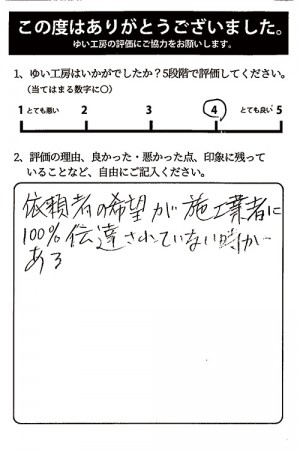 この度はありがとうございました。
ゆい工房の評価にご協力をお願いします。
1、ゆい工房はいかがでしたか？5段階で評価してください。
(当てはまる数字に○)
1 とても悪い 2 3 4 とても良い 5
2、評価の理由、良かった・悪かった点、印象に残って
いることなど、自由にご記入ください。
依頼者の希望が施工業者に
100%伝達されていない時が
ある